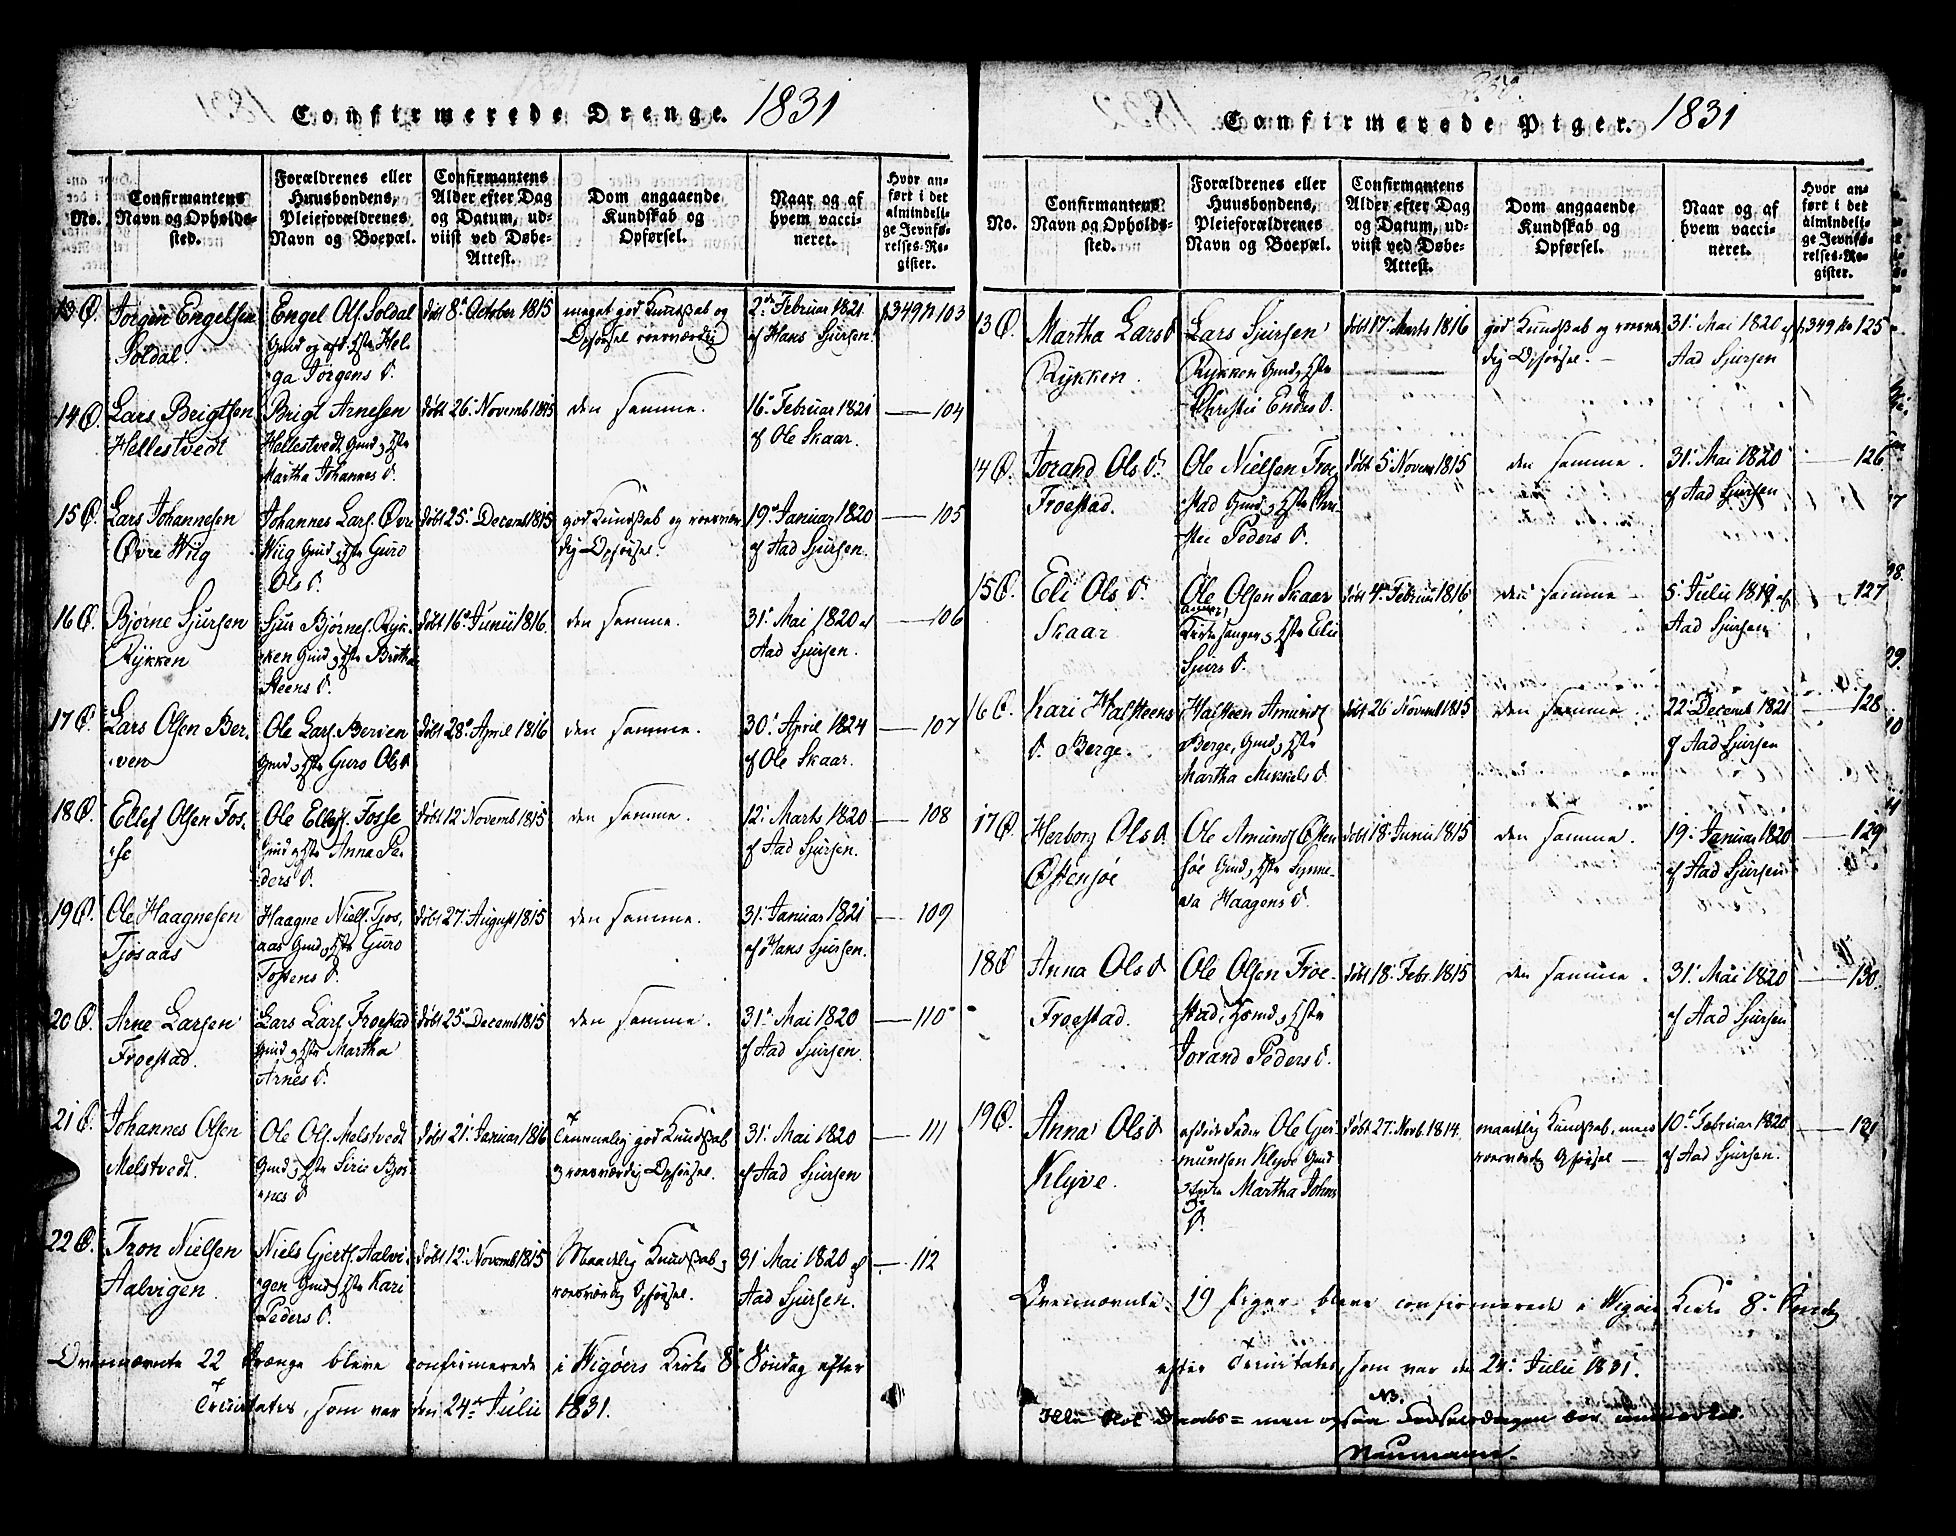 Confirmerede Drenge. 1831
No.
Confirmantens
Navn og Opholds-
sted.
Forældrenes eller
Huusbondens,
Pleieforældrenes
Navn og Boepæl.
Confirmantens
Alder efter Dag
og Datum, ud-
viist ved Døbe-
Attest.
Dom angaaende
Kundskab og
Opførsel.
Naar og af
hvem vacci-
neret.
Hvor an-
ført i det
almindeli-
ge Jevnfø-
relses-Re-
gister.
13 Ø.
Jørgen Engelsen
Soldal.
Engel Ols. Soldal
Gmd og aft. Hst. Hel-
ga Jørgens D.
døbt 8de October 1815
meget god Kundskab og
Opførsel roesværdig
2den Februar 1821
af Hans Sjursen.
p 349 No 103
14 Ø.
Lars Brigtsen
Hellestvedt
Brigt Arnesen
Hellestvedt Gmd, Hst.
Martha Johannes D.
døbt 26. Novemb 1815
den samme.
16. Februar 1821
af Ole Skaar.
104
15 Ø.
Lars Johannesen
Øvre Wiig
Johannes Lars. Øvre
Wiig Gmd, Hst. Guro
Ols D.
døbt 25. Decemb 1815
god Kundskab og roesvær-
dig Opførsel.
19. Januar 1820
af Aad Sjursen.
105
16 Ø.
Bjørne Sjursen
Rykken
Sjur Bjørnes. Ryk-
ken Gmd, Hst. Britha
Steens D.
døbt 16. Junii 1816.
den samme.
31. Mai 1820 af
Aad Sjursen.
106
17 Ø.
Lars Olsen Ber-
ven
Ole Lars. Berven
Gmd, Hst. Guro Ols D
døbt 28. April 1816
den samme.
30. April 1824
af Ole Skaar.
107
18 Ø.
Ellef Olsen Fos-
se
Ole Ellefs. Fosse
Gmd, Hst. Anna Pe-
ders D.
døbt 12. Novemb 1815
den samme.
12. Marts 1820
af Aad Sjursen.
108
19 Ø.
Ole Haagnesen
Tjosaas
Haagne Niels. Tjos-
aas Gmd, Hst. Guro
Tostens D.
døbt 27. August 1815
den samme.
31. Januar 1821
af Hans Sjursen.
109
20 Ø.
Arne Larsen
Froestad.
Lars Lars. Froestad
Gmd, Hst. Martha
Arnes D.
døbt 25. Decemb 1815
den samme.
31. Mai 1820
af Aad Sjursen.
110
21 Ø.
Johannes Olsen
Melstvedt.
Ole Ols. Melstvedt
Gmd, Hst. Siris Bjør
nes D
døbt 21. Januar 1816
Temmelig god Kundskab
og roesværdig Opførsel.
31. Mai 1820
af Aad Sjursen
111
22 Ø.
Tron Nielsen
Aalvigen.
Niels Gjerts. Aalvi-
gen Gmd, Hst. Kari
Peders D.
døbt 12. Novemb 1815
Maadelig Kundskab og
roesværdig Opførsel.
31 Mai 1820 af
Aad Sjursen.
112
Ovennævnte 22 Drænge bleve confirmerede i Wigøers Kirke 8de Søndag efter
Trinitates, som var den 24de Julii 1831.
Confirmerede Piger. 1831
No.
Confirmantens
Navn og Opholds-
sted.
Forældrenes eller
Huusbondens,
Pleieforældrenes
Navn og Boepæl.
Confirmantens
Alder efter Dag
og Datum, ud-
viist ved Døbe-
Attest.
Dom angaaende
Kundskab og
Opførsel.
Naar og af
hvem vacci-
neret.
Hvor an-
ført i det
almindeli-
ge Jevnfø-
relses-Re-
gister.
13 Ø.
Martha Lars D
Rykken.
Lars Sjursen
Rykken Gmd, Hst.
Christi Endes D.
døbt 17. Marts 1816
god Kundskab og roesvær-
dig Opførsel.
31. Mai 1820 af
Aad Sjursen
p 349 No 125
14 Ø.
Jorand Ols D.
Froestad.
Ole Nielsen Froe
stad Gmd, Hst. Chri
stie Peders D.
døbt 5. Novem 1815
den samme.
31. Mai 1820
af Aad Sjursen
126
15 Ø.
Eli Ols D.
Skaar
Ole Olsen Skaar
Kirkesanger, Hst. Elie
Sjurs D.
døbt 4. Februar 1816
den samme
5 Julii 1819 af
Aad Sjursen
127
16 Ø.
Kari Halsteens
D. Berge.
Halsteen Amunds.
Berge, Gmd, Hst.
Martha Mikkels D.
døbt 26. Novemb 1815
den samme
22. Decemb 1821
af Aad Sjursen
128
17 Ø.
Herborg Ols D.
Østensøe
Ole Amunds. Østen
søe Gmd, Hst. Synne-
va Haagens D.
døbt 18. Junii 1815
den samme.
19. Januar 1820
af Aad Sjursen
129
18 Ø
Anna Ols D
Froestad.
Ole Olsen Froe-
stad, Hsmd, Hst.
Jorand Peders D.
døbt 18. Febr. 1815
den samme.
31. Mai 1820
af Aad Sjursen
130.
19 Ø.
Anna Ols D
Klyve.
Fader Ole Gjer
mundsen Klyve Gmd
Martha Johns
D.
døbt 27. Novb. 1814.
maadelig Kundskab, men
roesværdig Opførsel
10. Februar 1820
af Aad Sjursen.
131
Ovennævnte 19 Piger bleve confirmerede i Wigøers Kirke 8de Søndag
efter Trinitates, som var den 24. Julii 1831.
NB.
Ikke blot Daabs= men ogsaa Fødselsdagen bør anmærkes.
Neumann.